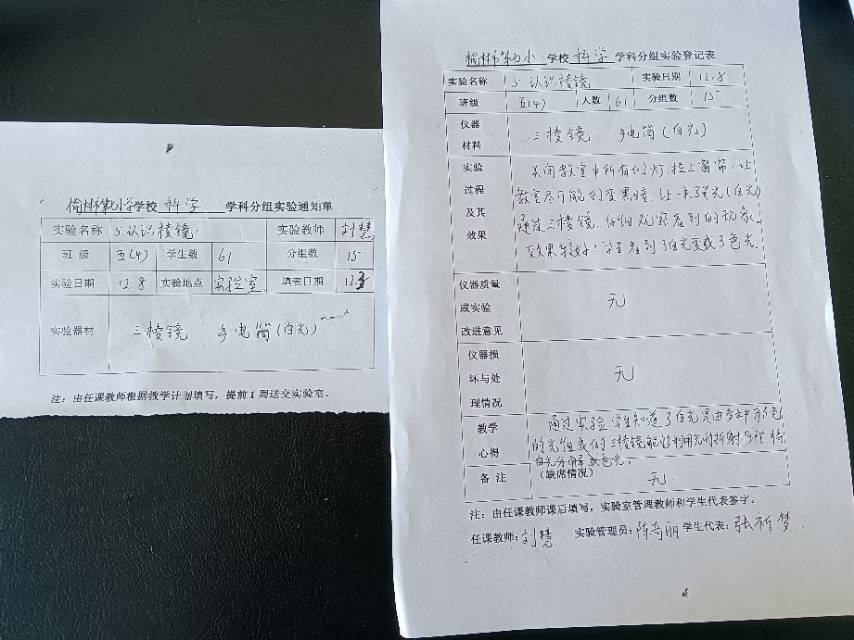 榆林市第七小学学校 科学 学科分组实验通知单
实验名称 5.认识棱镜 实验教师 刘慧
班 级 五(4) 学生数 61 分组数 15
实验日期 12.8 实验地点 实验室 填表日期 12.3
实验器材 三棱镜 手电筒(白光)
注：由任课教师根据教学计划填写，提前1周送交实验室。
榆林市第七小 学校 科学 学科分组实验登记表
实验名称 5.认识棱镜 实验日期 12.8
班级 五(4) 人数 61 分组数 15
仪器
材料
三棱镜 手电筒(白光)
实验
过程
及其
效果
关闭教室中所有的灯,拉上窗帘,让
教室尽可能的变黑暗,让一束强光(白光)
通过三棱镜,仔细观察看到的现象。
效果较好:学生看到了白光变成了色光.
仪器质量
或实验
改进意见
无
仪器损
坏与处
理情况
无
教学
心得
通过实验,学生知道了白光是由多种颜色
的光组成的,三棱镜能够利用光的折射原理,将
白光分解成色光。
备 注 （缺席情况） 无
注：由任课教师课后填写，实验室管理教师和学生代表签字。
任课教师：刘慧 实验管理员：陈奇丽 学生代表：张祈梦